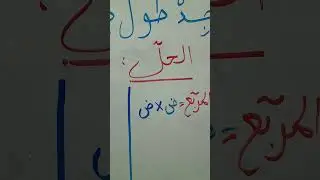 جد طول
الحل :
المربع = ض × ض
المربع =